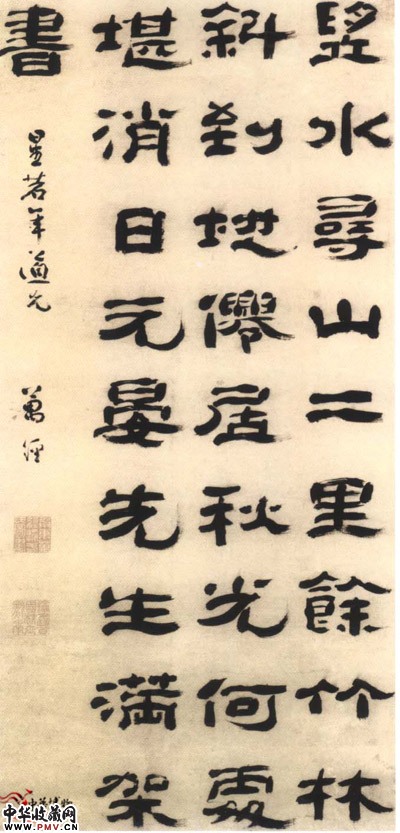 水尋山二里餘竹林
斜到地僊居秋光何處
堪消日元晏先生滿架
書
星若年道兄
萬經
中华收藏网
www.PMV.CN